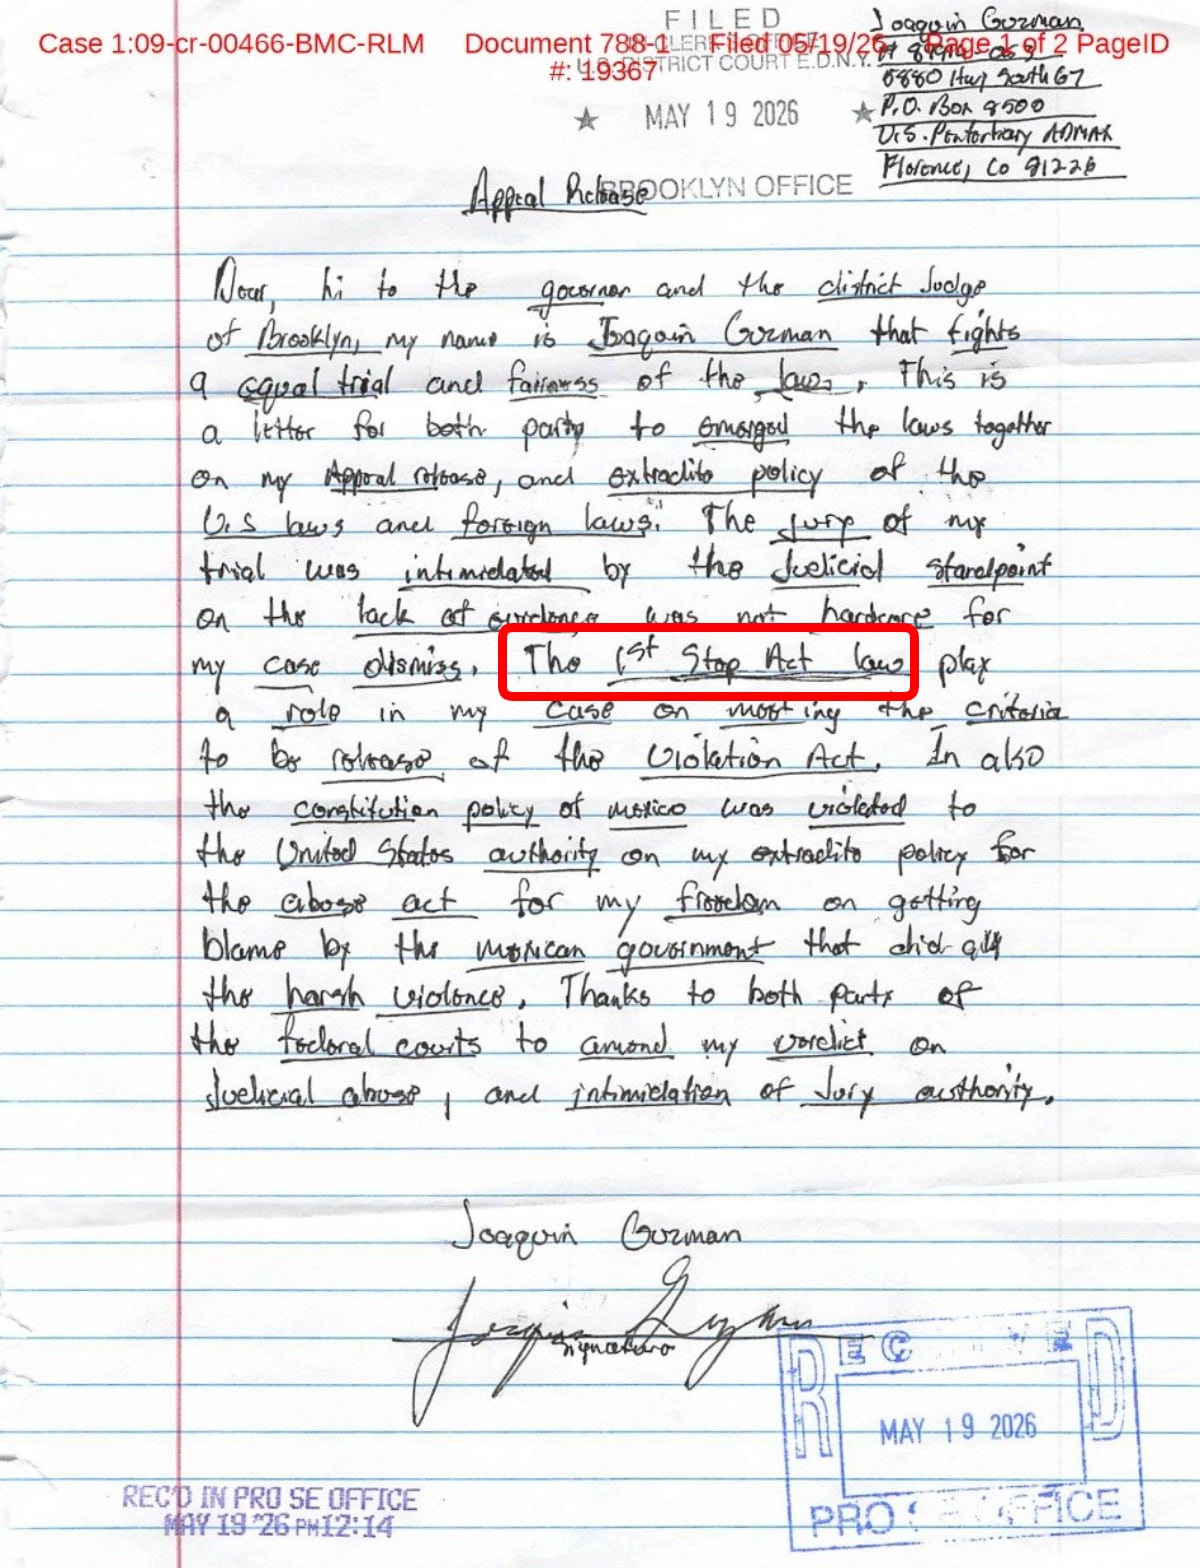 FILED
IN CLERK'S OFFICE
U.S. DISTRICT COURT E.D.N.Y.
Case 1:09-cr-00466-BMC-RLM Document 788-1 Filed 05/19/26 Page 1 of 2 PageID
#: 19367
★ MAY 19 2026 ★
BROOKLYN OFFICE
Joaquin Guzman
6880 Hwy South 67
P.O. Box 8500
U.S. ADMAX
Florence, Co 81226
Appeal Release
Dear, hi to the governor and the district Judge
of Brooklyn, my name is Joaquin Guzman that fights
a equal trial and fairness of the laws. This is
a letter for both party to emerged the laws together
on my Appeal release, and extradite policy of the
U.S laws and foreign laws. The Jury of my
trial was intimidated by the Judicial standpoint
on the lack of evidence was not hardcore for
my case dismiss. The 1st Stop Act law play
a role in my case on meeting the criteria
to be release of the Violation Act. In also
the constitution policy of mexico was violated to
the United States authority on my extradite policy for
the abuse act for my freedom on getting
blame by the mexican government that did all
the harsh violence. Thanks to both party of
the federal courts to amend my verdict on
Judicial abuse, and intimidation of Jury authority.
Joaquin Guzman
signature
RECEIVED
MAY 19 2026
PRO SE OFFICE
REC'D IN PRO SE OFFICE
MAY 19 '26 PM12:14